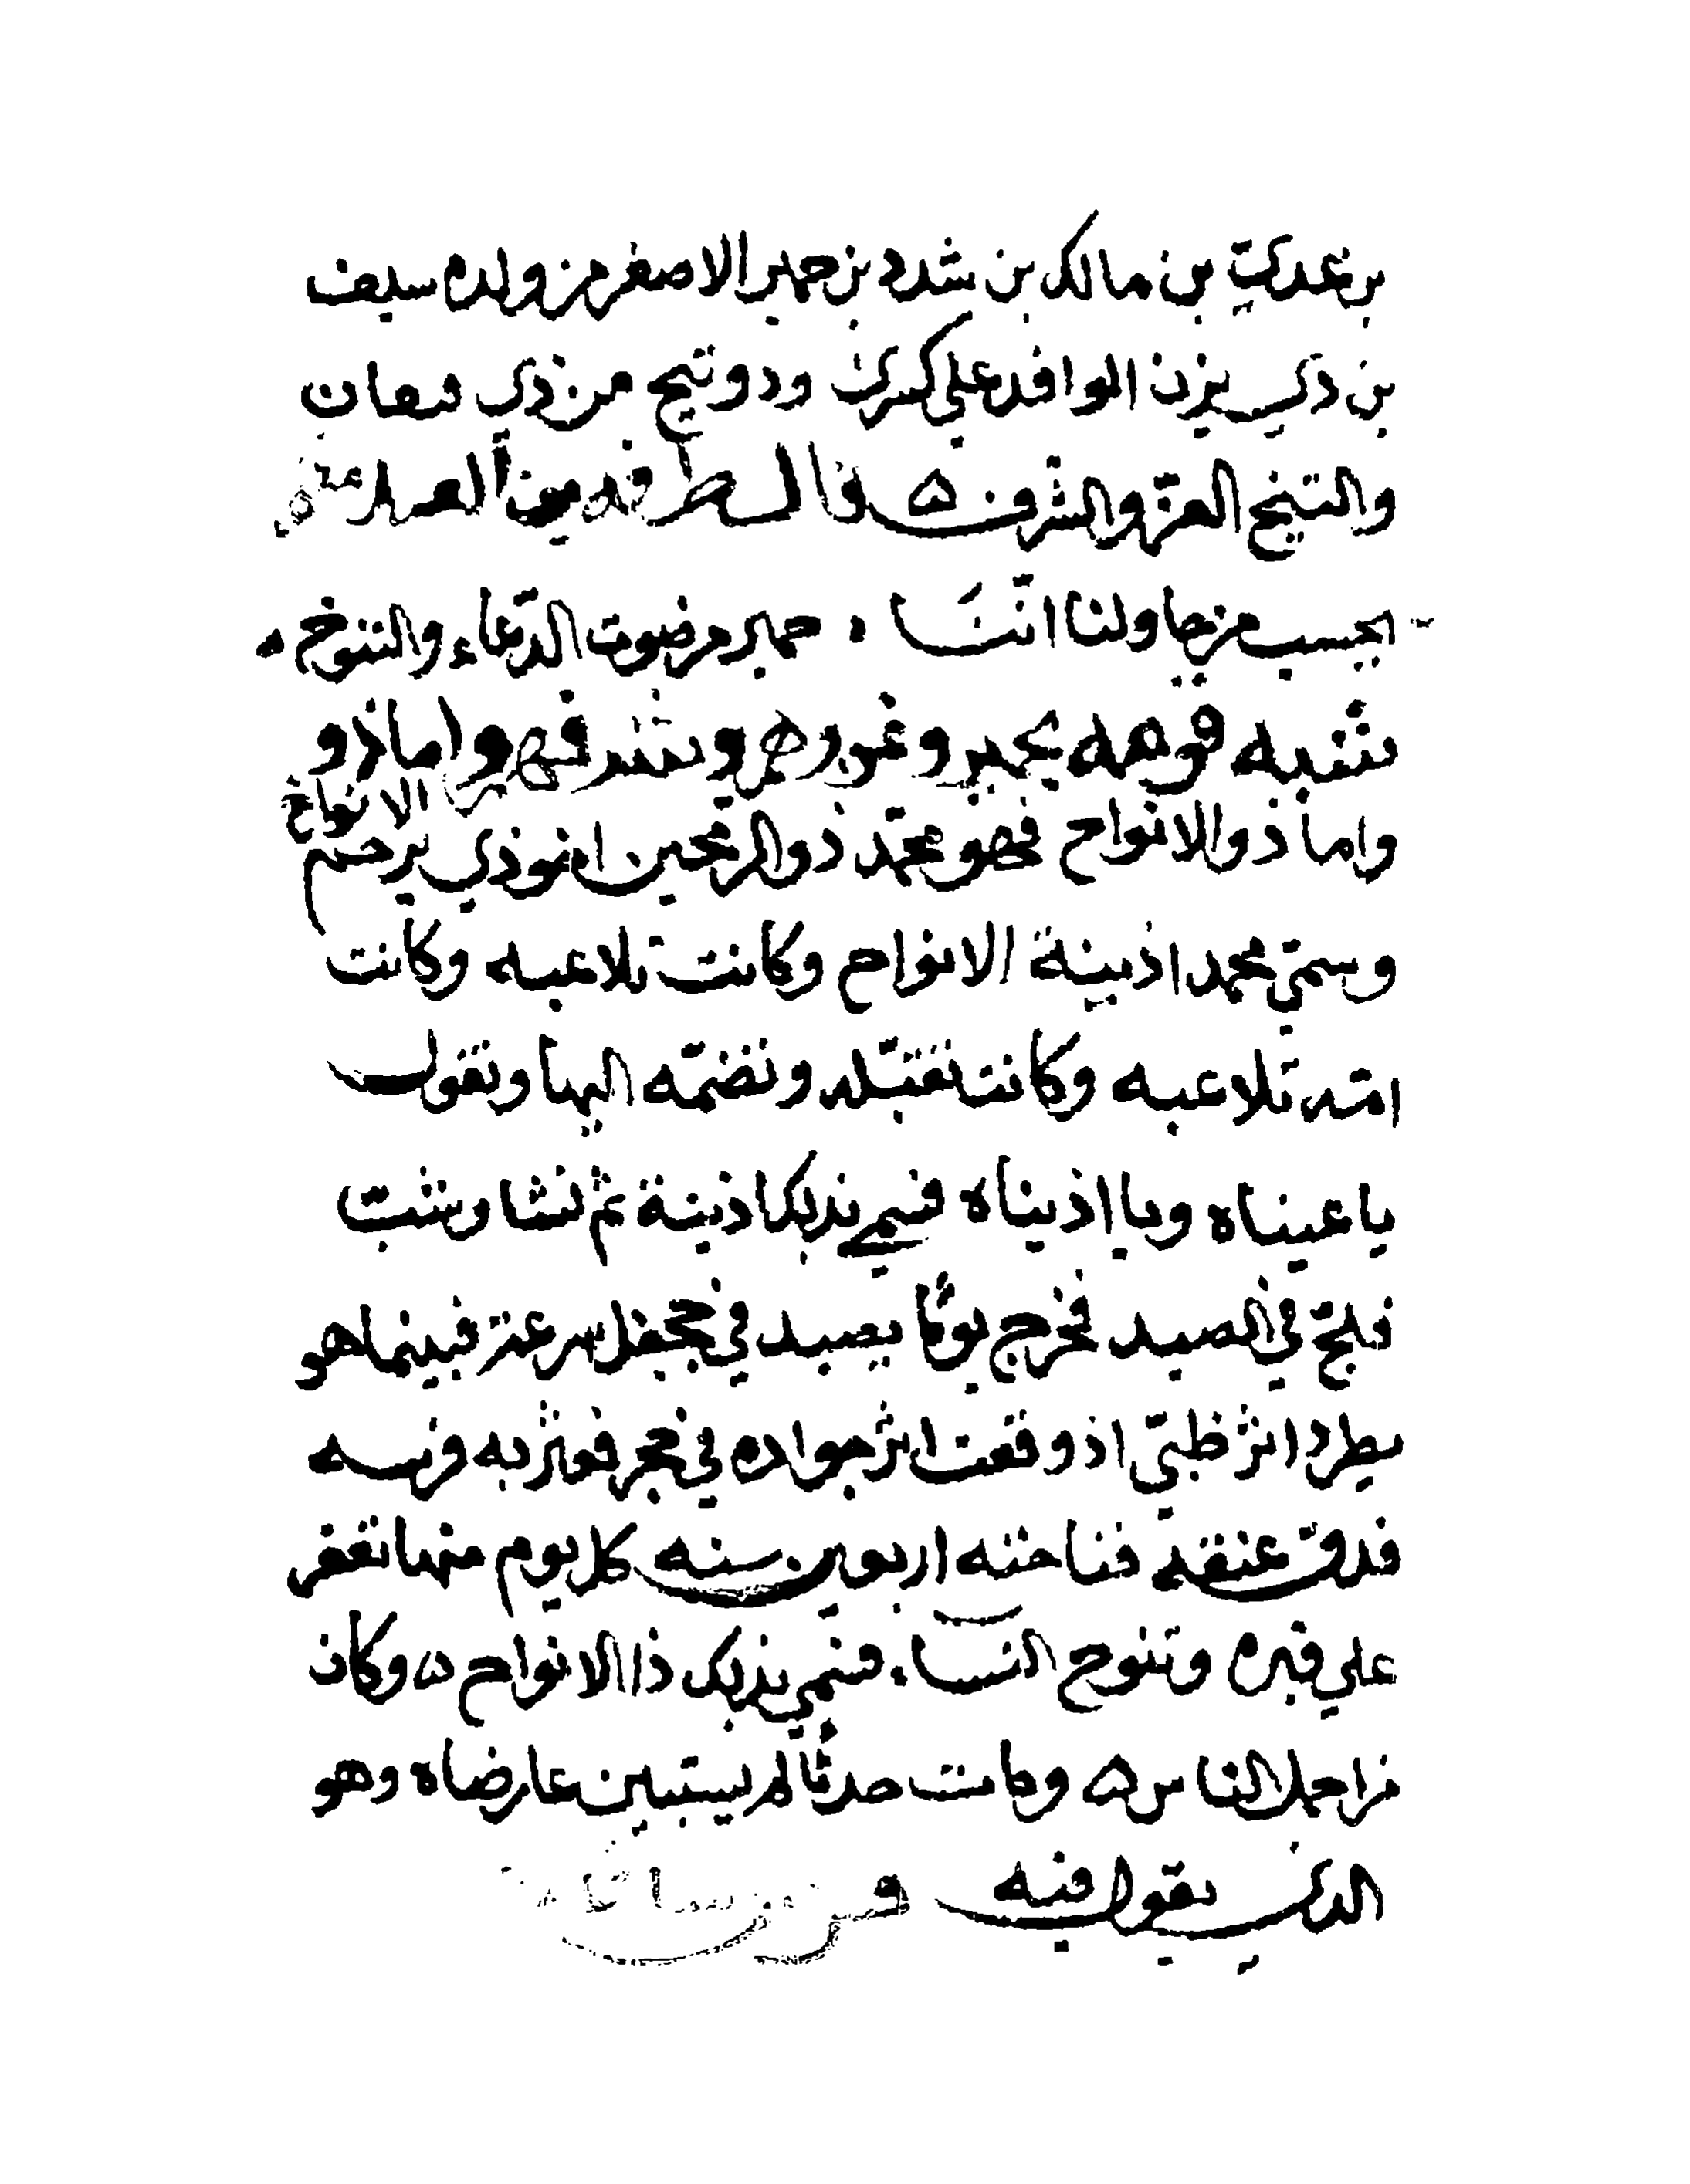 بن عدي بن مالك بن شدد بن حمير الاصغر من ولده سيف
بن ذي يزن الوافد على كسرى وذو تيح من ذي
والتيخ العز والشرف قال
بحسب من حاولنا اننا حمير مرضوت الدعاء والتنوخ
شبه قومه بحمير وغوره وشد فهو واما ذو
الانواح
واما ذو الانواح فهو محمد ذو الرمحين انو ذي يرحم
وسمي محمد اذينة الانواح وكانت تلاعبه وكانت
امه تلاعبه وكانت تقبله وتضمه اليها وتقول
يا عيناه ويا اذيناه فسمي بذلك اذينة ثم نشا وشب
فلج في الصيد فخرج يومًا يصيد في جحفل سرعة فبينما هو
يطرد اثر ظبي اذ وقعت اثر جواده في حجر فعثر به فرسه
فدق عنقه فناحته اربعين سنه كل يوم منها تعقر
على قبره وتنوح النسا فسمي بذلك ذا الانواح ٥ وكان
من اجمل الناس ٥ وكانت حدثًا لم يستبين عارضاه وهو
الذي يقول فيه